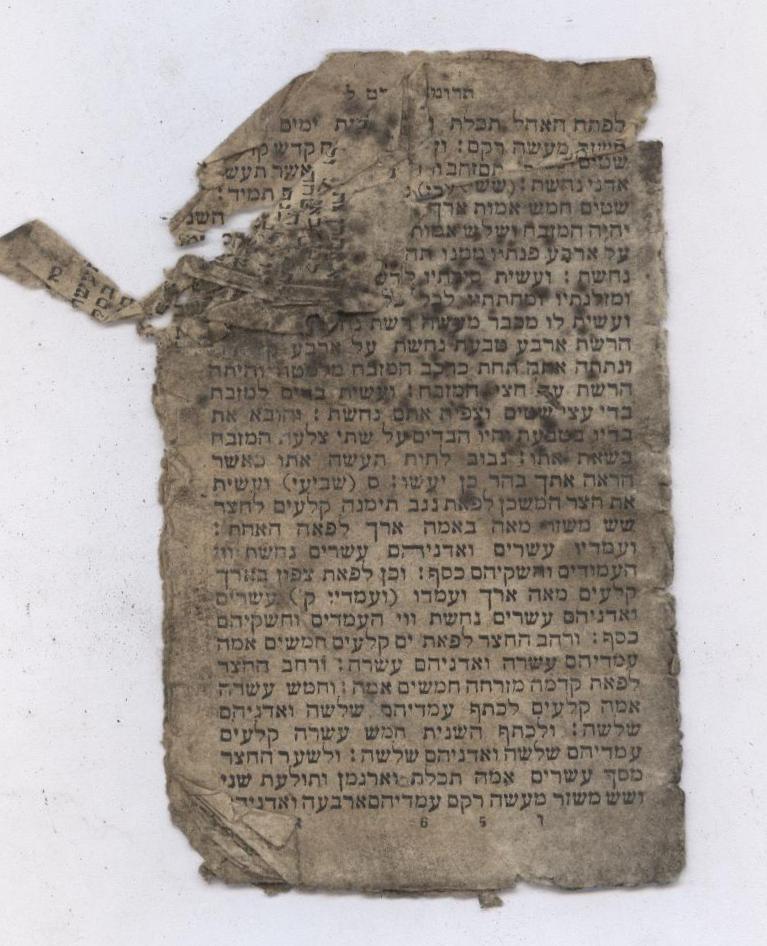 תרומ
לפתח האהל תכלת ו ימים
משזר מעשה רקם: וז קדש
שטים
אדני נחשת: (ששי) אשר תעש
שטים חמש אמות ארך תמיד:
יהיה המזבח ושלש אמות השנ
על ארבע פנתיו ממנו תה
נחשת: ועשית סירתיו לדש
ומזלגתיו ומחתתיו לכל
ועשית לו מכבר מעשה רשת נח
הרשת ארבע טבעת נחשת על ארבע
ונתתה אתה תחת כרכב המזבח מלמטה והיתה
הרשת עד חצי המזבח: ועשית בדים למזבח
בדי עצי שטים וצפית אתם נחשת: והובא את
בדיו בטבעת והיו הבדים על שתי צלעת המזבח
בשאת אתו: נבוב לחת תעשה אתו כאשר
הראה אתך בהר כן יעשו: ס (שביעי) ועשית
את חצר המשכן לפאת נגב תימנה קלעים לחצר
שש משזר מאה באמה ארך לפאה האחת:
ועמדיו עשרים ואדניהם עשרים נחשת ווי
העמודים וחשקיהם כסף: וכן לפאת צפון בארך
קלעים מאה ארך ועמדו (ועמדיו ק) עשרים
ואדניהם עשרים נחשת ווי העמדים וחשקיהם
כסף: ורחב החצר לפאת ים קלעים חמשים אמה
עמדיהם עשרה ואדניהם עשרה: ורחב החצר
לפאת קדמה מזרחה חמשים אמה: וחמש עשרה
אמה קלעים לכתף עמדיהם שלשה ואדניהם
שלשה: ולכתף השנית חמש עשרה קלעים
עמדיהם שלשה ואדניהם שלשה: ולשער החצר
מסך עשרים אמה תכלת וארגמן ותולעת שני
ושש משזר מעשה רקם עמדיהם ארבעה ואדניה
6 5 ו